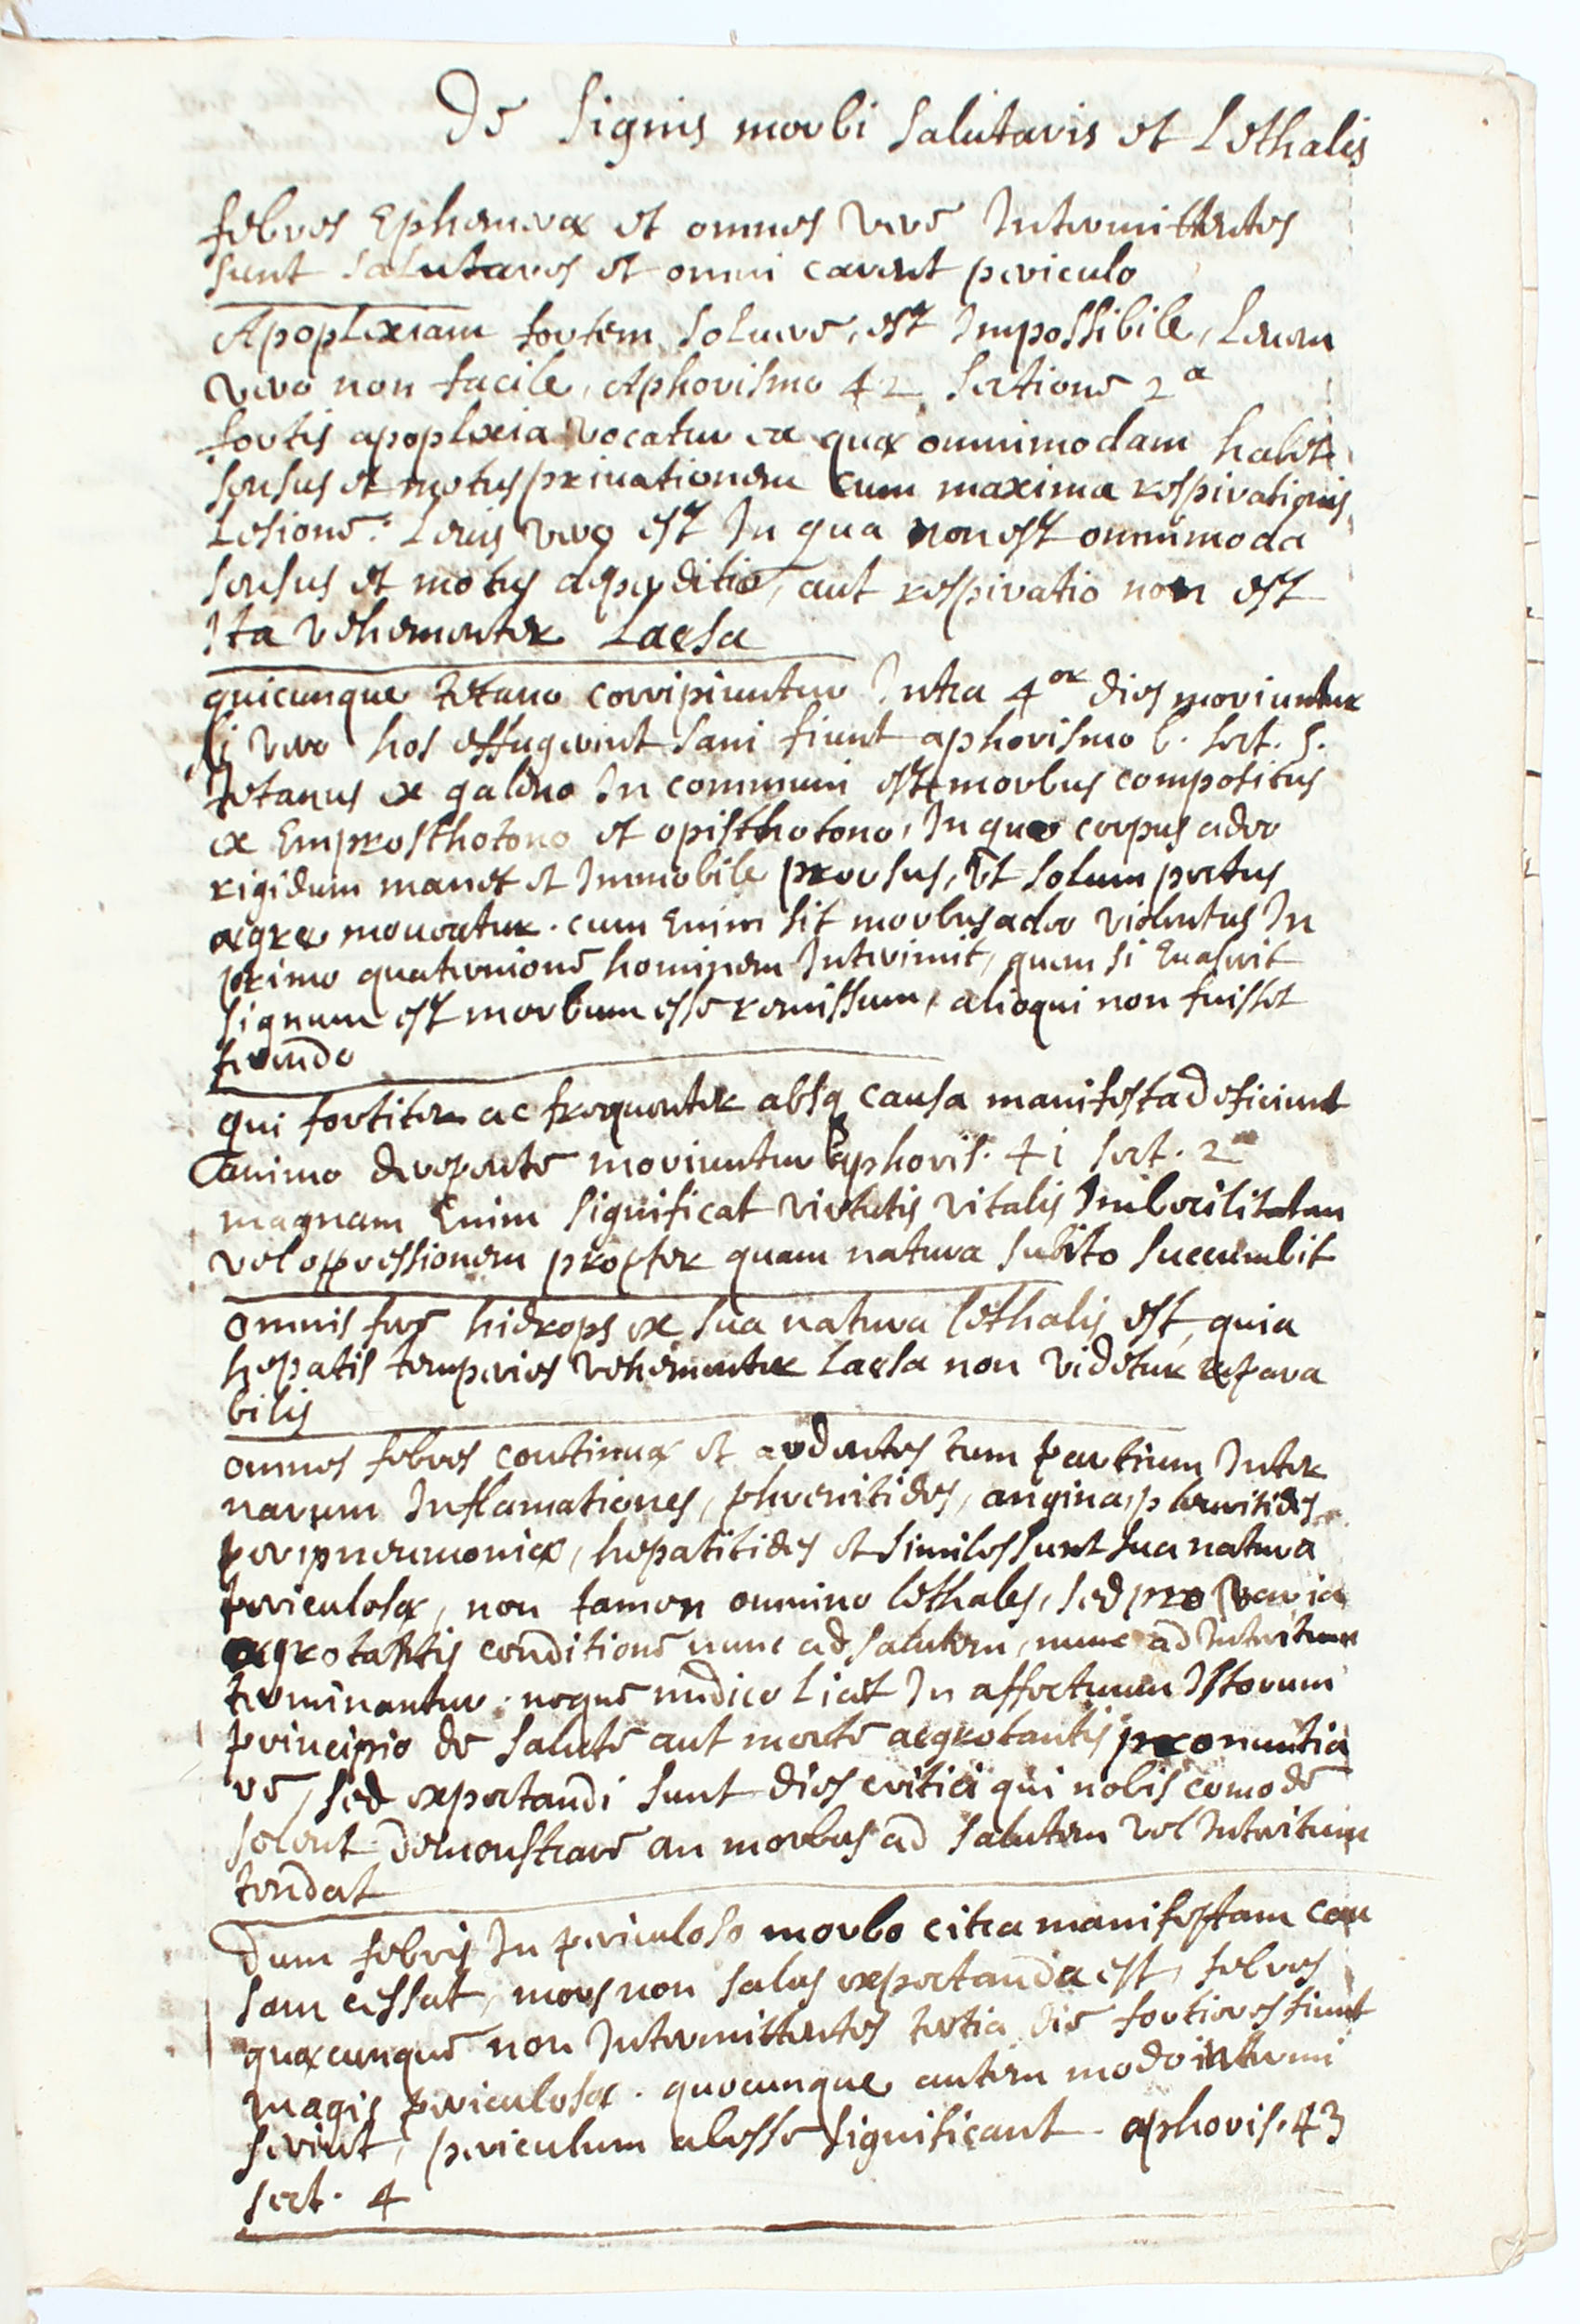 De Signis morbi salutaris et Lethalis
febres Ephemeræ et omnes vere Intermittentes
sunt salutares et omni carent periculo
Apoplexiam fortem soluere, est Impossibile, Leuem
vero non facile, Aphorismo 42 sectione 2ᵃ
fortis apoplexia vocatur ea quæ omnimodam habet
sensus et motus priuationem cum maxima respirationis
Lesione: Leuis vero est In qua non est omnimoda
sensus et motus deperditio, aut respiratio non est
Ita vehementer Laesa
quicunque tetano corripiuntur Intra 4ᵒʳ dies moriuntur
si vero hos effugerint sani fiunt aphorismo 6. sect. 5.
Tetanus ex galeno In communi est morbus compositus
ex Emprosthotono et opisthotono, In quo corpus adeo
rigidum manet et Immobile prorsus, Vt solum pectus
ægre moueatur. cum Enim sit morbus adeo violentus In
primo quaternione hominem Interimit, quem si Euaserit
signum est morbum esse remissum, alioqui non fuisset
ferendo
qui fortiter ac frequenter absq causa manifesta deficiunt
animo derepente moriuntur aphoris. 41 sect. 2ᵃ
magnam Enim significat virtutis vitalis Imbecilitatem
vel oppressionem propter quam natura subito succumbit
omnis fere hidrops ex sua natura lethalis est, quia
hepatis temperies vehementer laesa non videtur repara
bilis
omnes febres continuæ et ardentes tum partium Inter
narum Inflamationes, phrenitides, angina, pleuritides
peripneumoniæ, hepatitides et similes sunt sua natura
periculosæ, non tamen omnino lethales, sed pro varia
ægrotantis conditione nunc ad salutem, nunc ad Interitum
terminantur: neque medico licet In affectuum Istorum
principio de salute aut morte aegrotantis pronuntia
re, sed expectandi sunt dies critici qui nobis comode
solent demonstrare an morbus ad salutem vel Interitum
tendat
Dum febris In periculoso morbo citra manifestam cau
sam cessat, mors non salus expectanda est, febres
quæcunque non Intermittentes tertia die fortiores fiunt
magis periculosæ. quocunque autem modo intermi
serint, periculum abesse significant. aphoris. 43
sect. 4